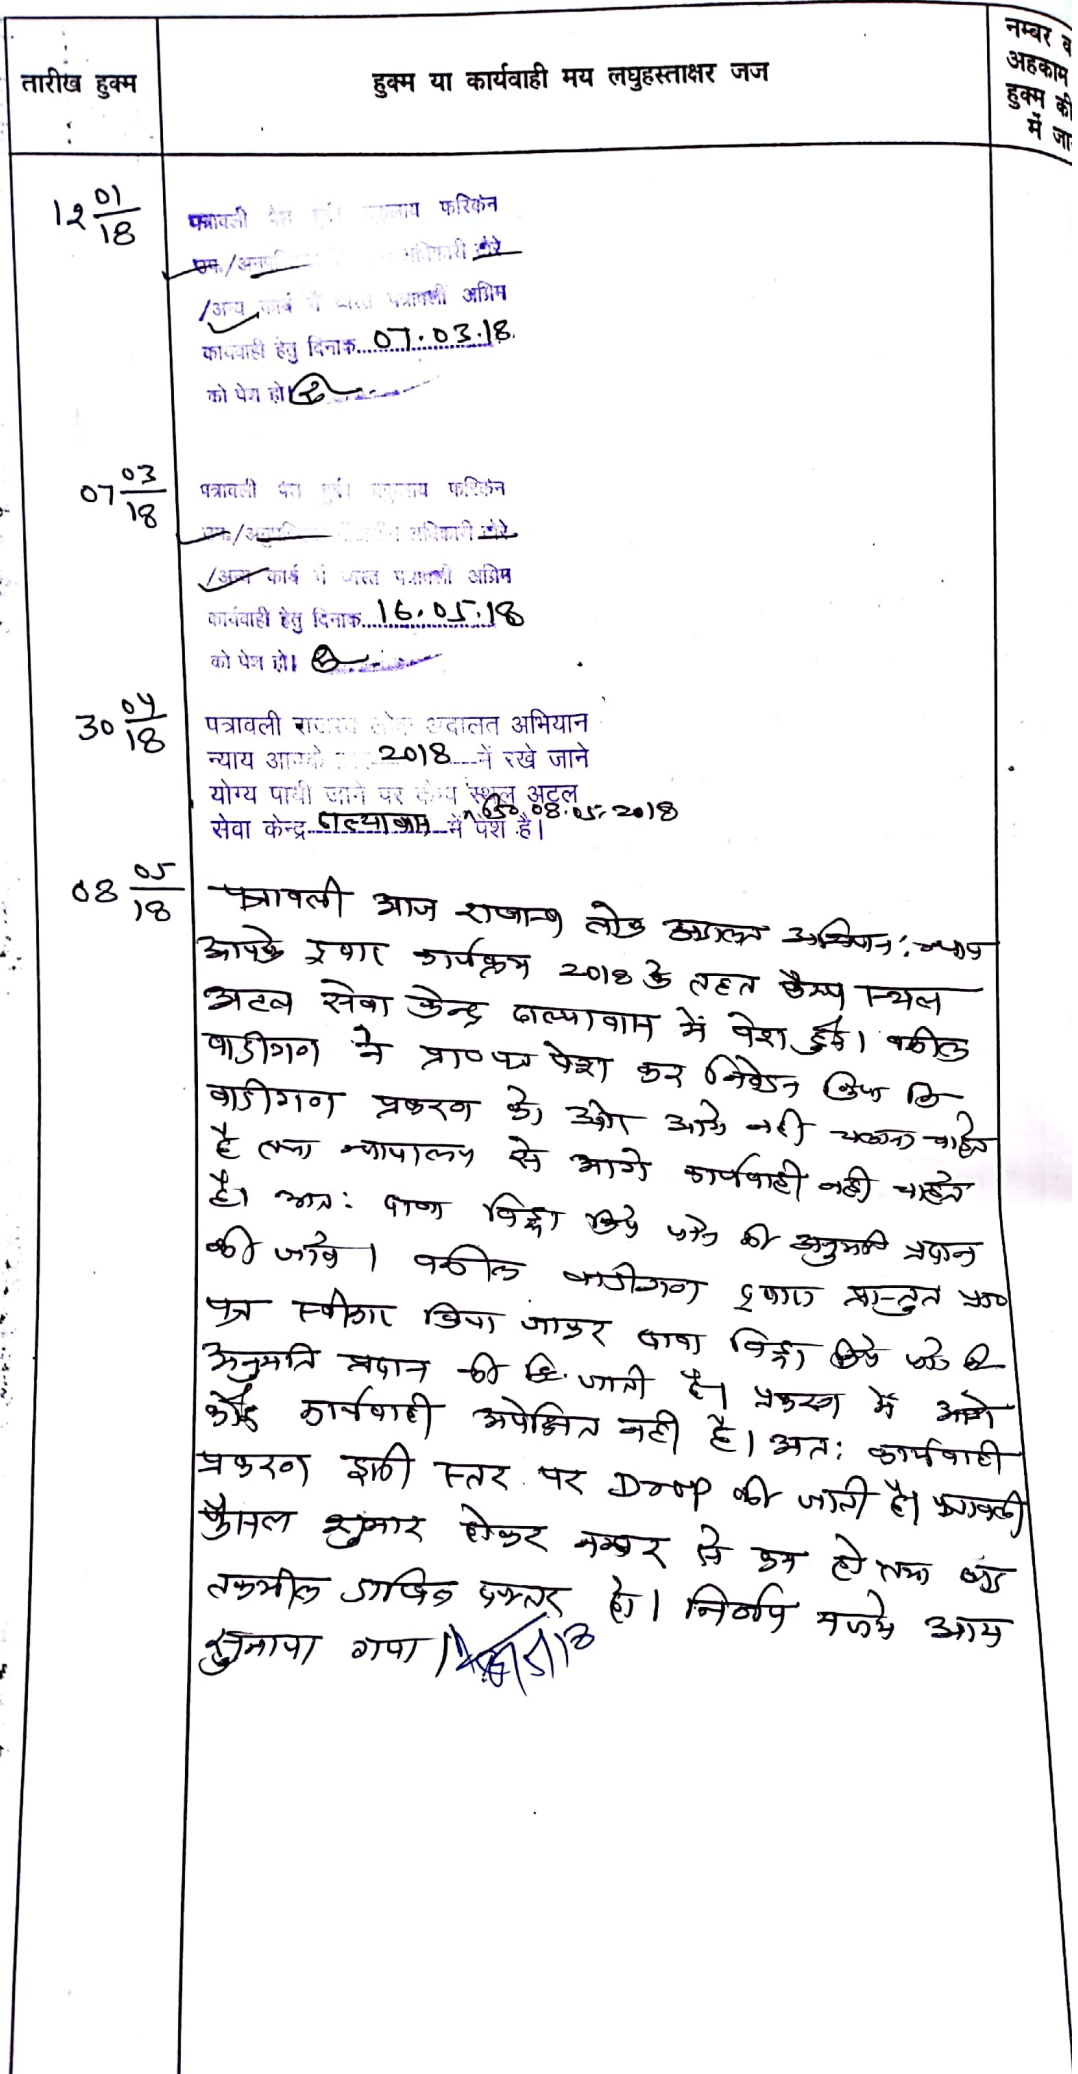 तारीख हुक्म
हुक्म या कार्यवाही मय लघुहस्ताक्षर जज
नम्बर व
अहकाम
हुक्म की
में जा
12 01/18
पत्रावली पेश हुई। वकुलाय फरिकेन
उप./अनुप अधिकारी दौरे
/अन्य कार्य में व्यस्त पत्रावली अग्रिम
कार्यवाही हेतु दिनांक 07.03.18.
को पेश हो।
07 03/18
पत्रावली पेश हुई। वकुलाय फरिकेन
उप./अनुप अधिकारी दौरे
/अन्य कार्य में व्यस्त पत्रावली अग्रिम
कार्यवाही हेतु दिनांक 16.05.18
को पेश हो।
30 04/18
पत्रावली राजस्व लोक अदालत अभियान
न्याय आपके 2018 में रखे जाने
योग्य पायी जाने पर केम्प स्थल अटल
08.05.2018
सेवा केन्द्र में पेश है।
08 05/18
पत्रावली आज राजस्व लोक अदालत अभियान: न्याय
आपके द्वार कार्यक्रम 2018 के तहत कैम्प स्थल
अटल सेवा केन्द्र में पेश हुई। वकील
वादीगण ने प्रा०पत्र पेश कर निवेदन किया कि
वादीगण प्रकरण को और आगे नहीं चलाना चाहते
है तथा न्यायालय से आगे कार्यवाही नही चाहते
है। अत: दावा विड्रो किये जाने की अनुमति प्रदान
की जावे। वकील वादीगण द्वारा प्रस्तुत प्रा०
पत्र स्वीकार किया जाकर दावा विड्रो किये जाने की
अनुमति प्रदान की जाती है। प्रकरण में आगे
कोई कार्यवाही अपेक्षित नही है। अत: कार्यवाही
प्रकरण इसी स्तर पर Drop की जाती है। पत्रावली
फैसल शुमार होकर नम्बर से कम हो तथा बाद
तकमील दाखिल दफ्तर हो। निर्णय मजमे आम
सुनाया गया।